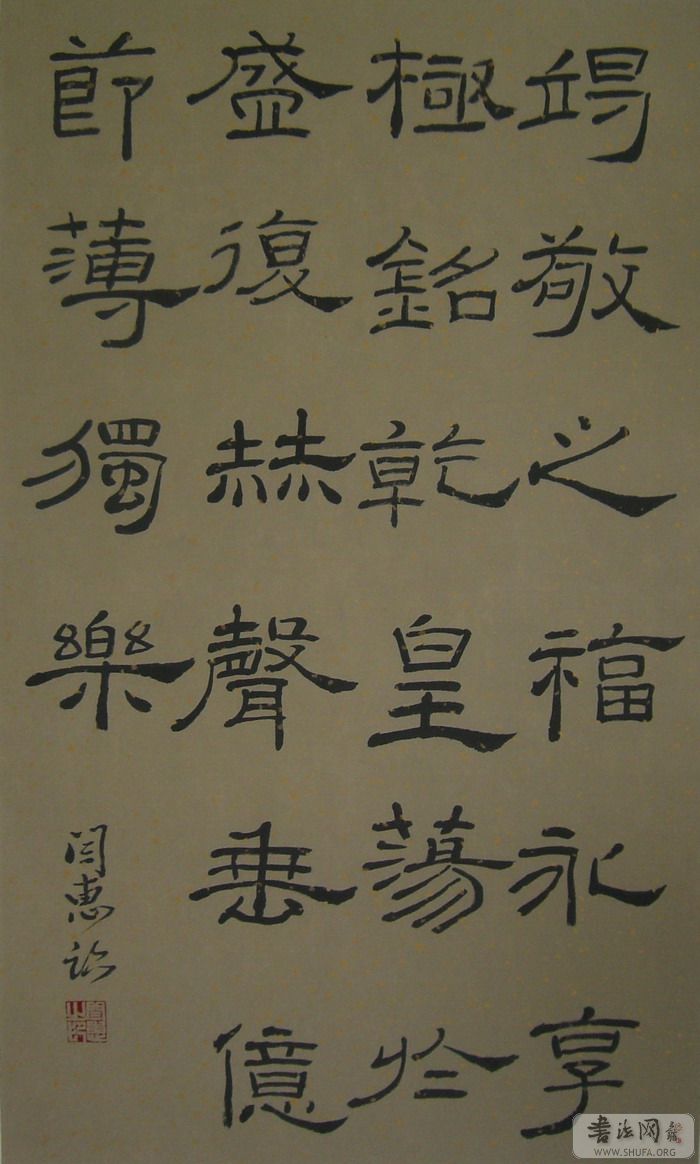 竭敬之福永享
極銘乾皇蕩於
盛復赫聲垂億
節薄獨樂
閆惠
书法网
WWW.SHUFA.ORG